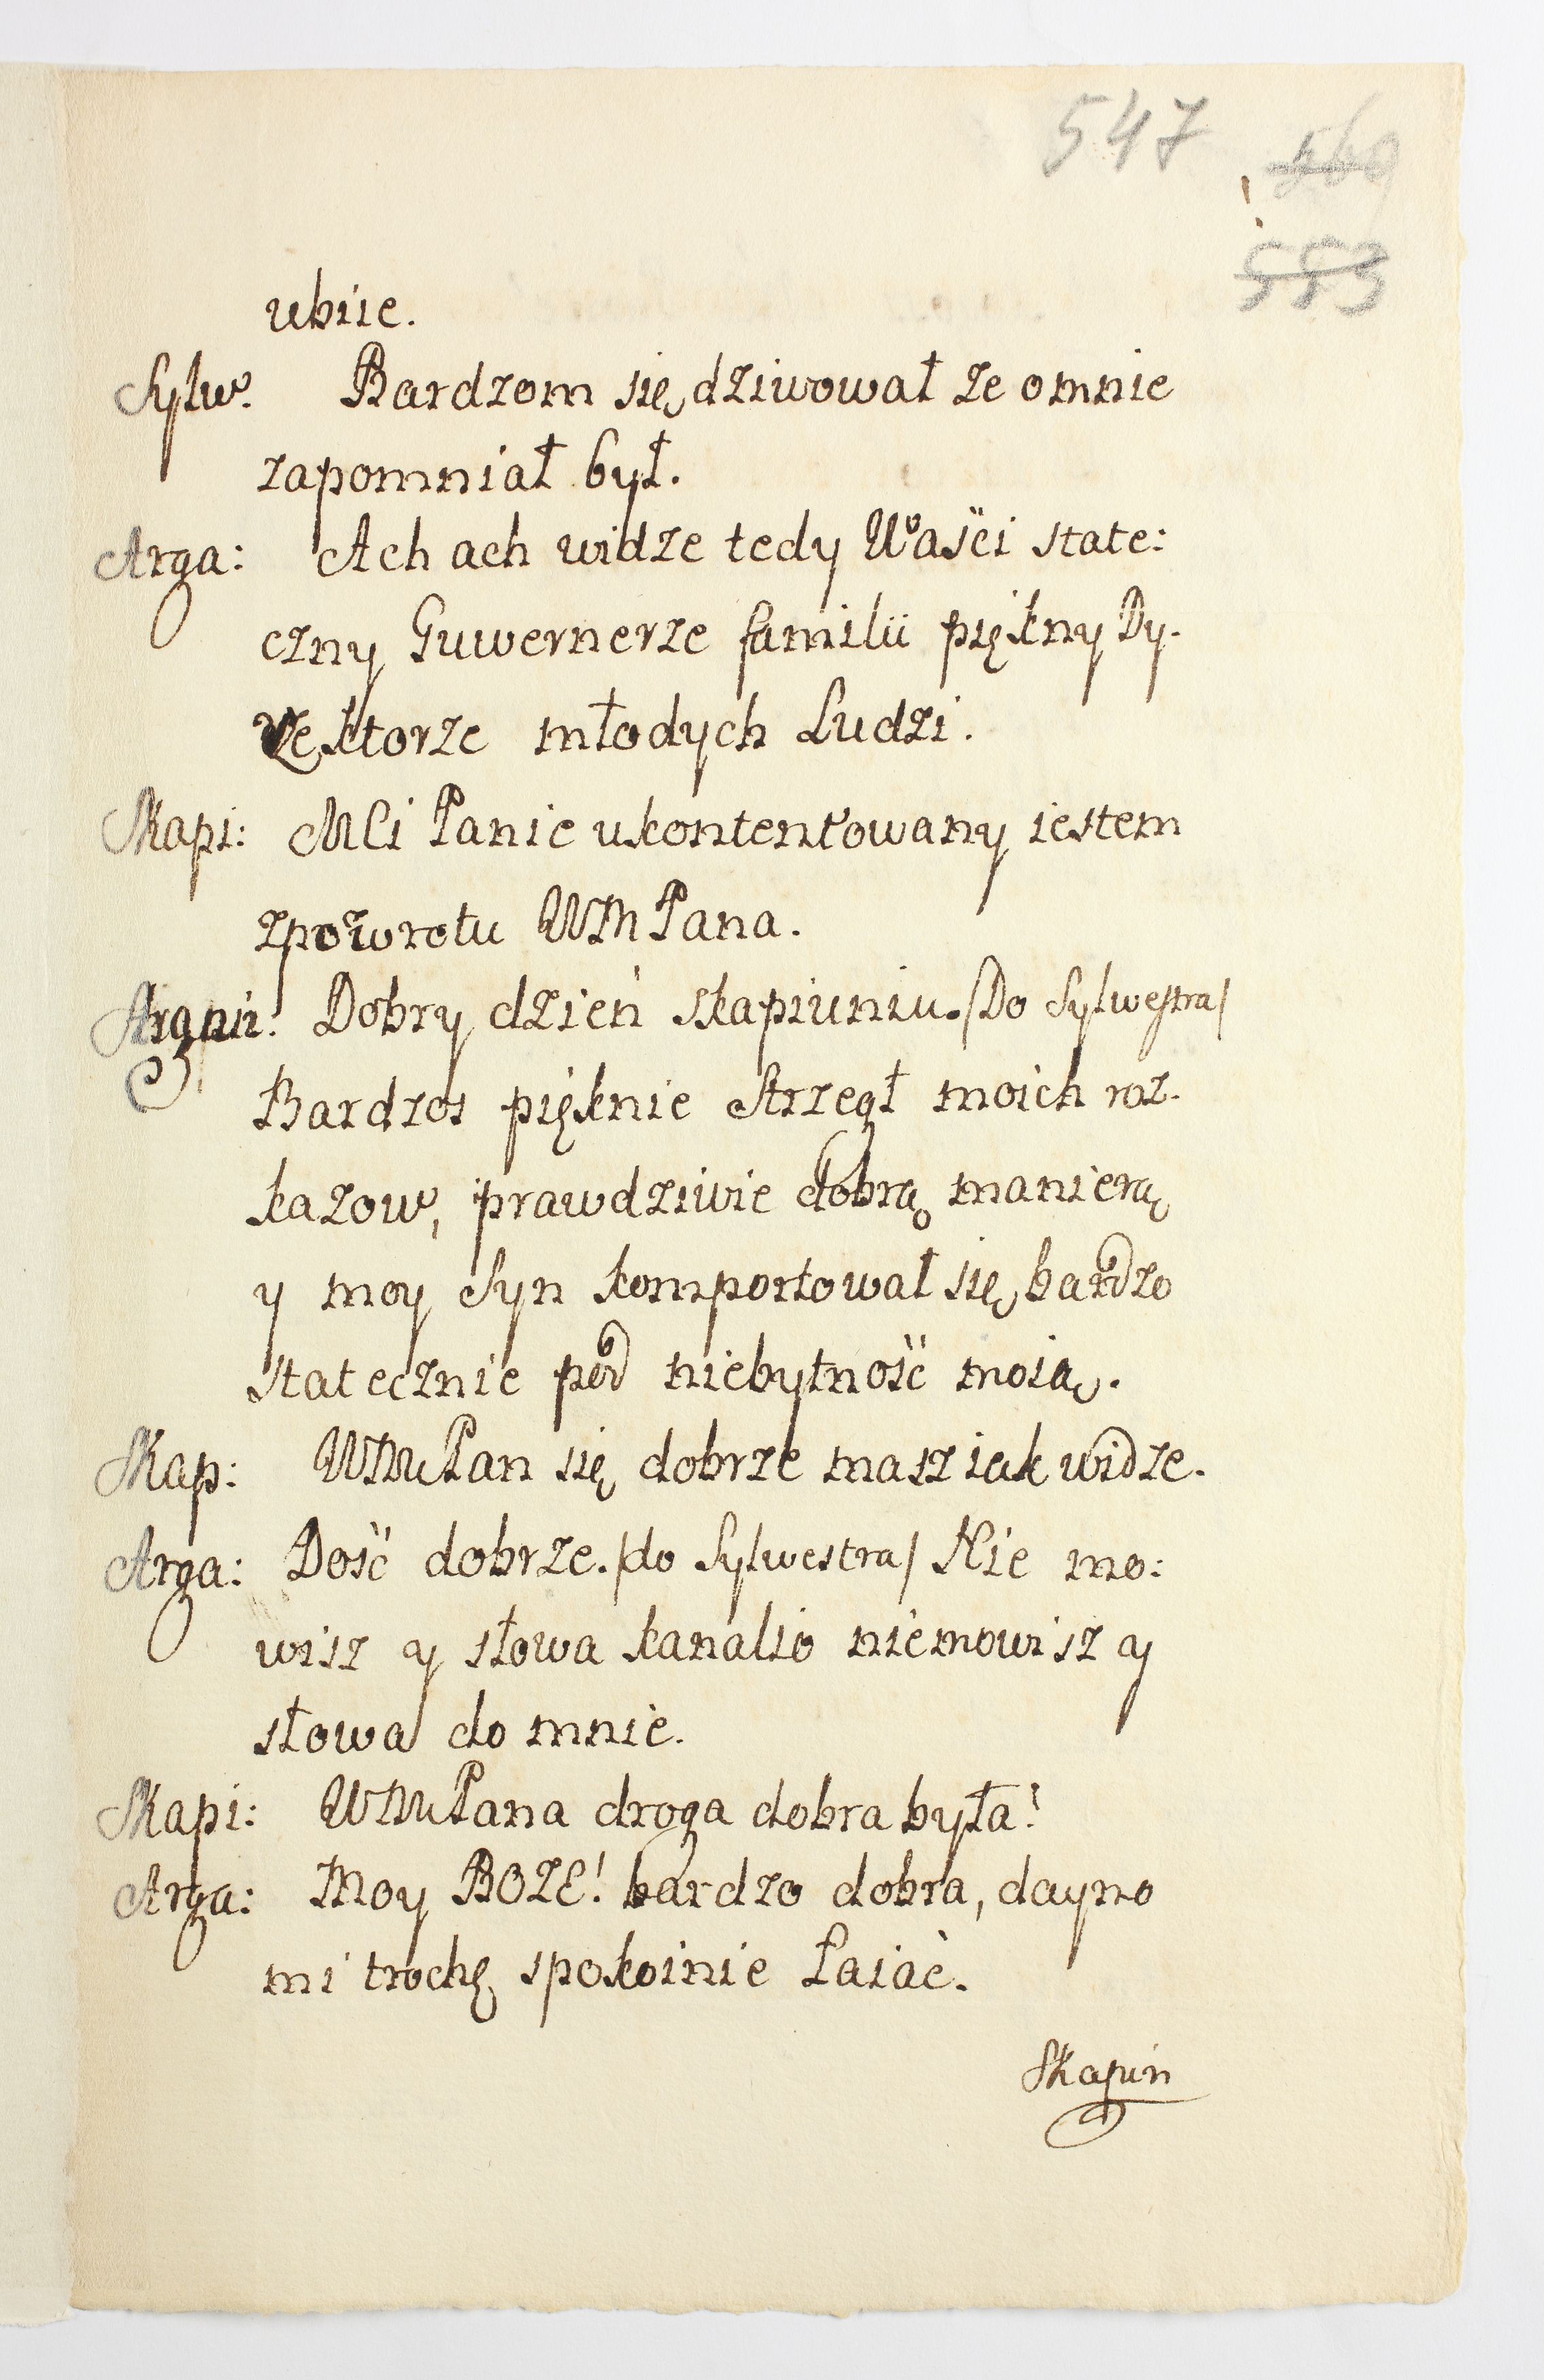 547 569
553
ubiie.
Sylw. Bardzom się dziwował ze omnie
zapomniał był.
Arga: Ach ach widze tedy Waści state:
czny Guwernerze familii piękny Dy-
rektorze młodych Ludzi.
Skapi: MCi Panie ukontentowany iestem
zpowrotu WM Pana.
Argan: Dobry dzień skapiuniu. /Do Sylwestra/
Bardzos pięknie strzegł moich roz-
kazow, prawdziwie dobrą manierą
y moy Syn komportował się bardzo
statecznie pod niebytność moią.
Skap: WMPan się dobrze masz iak widze.
Arga: Dość dobrze. /do Sylwestra/ Nie mo:
wisz y słowa kanalio niemowisz y
słowa do mnie.
Skapi: WMPana droga dobra była!
Arga: Moy BOZE! bardzo dobra, daymo
mi trochę spokoinie Łaiać.
Skapin